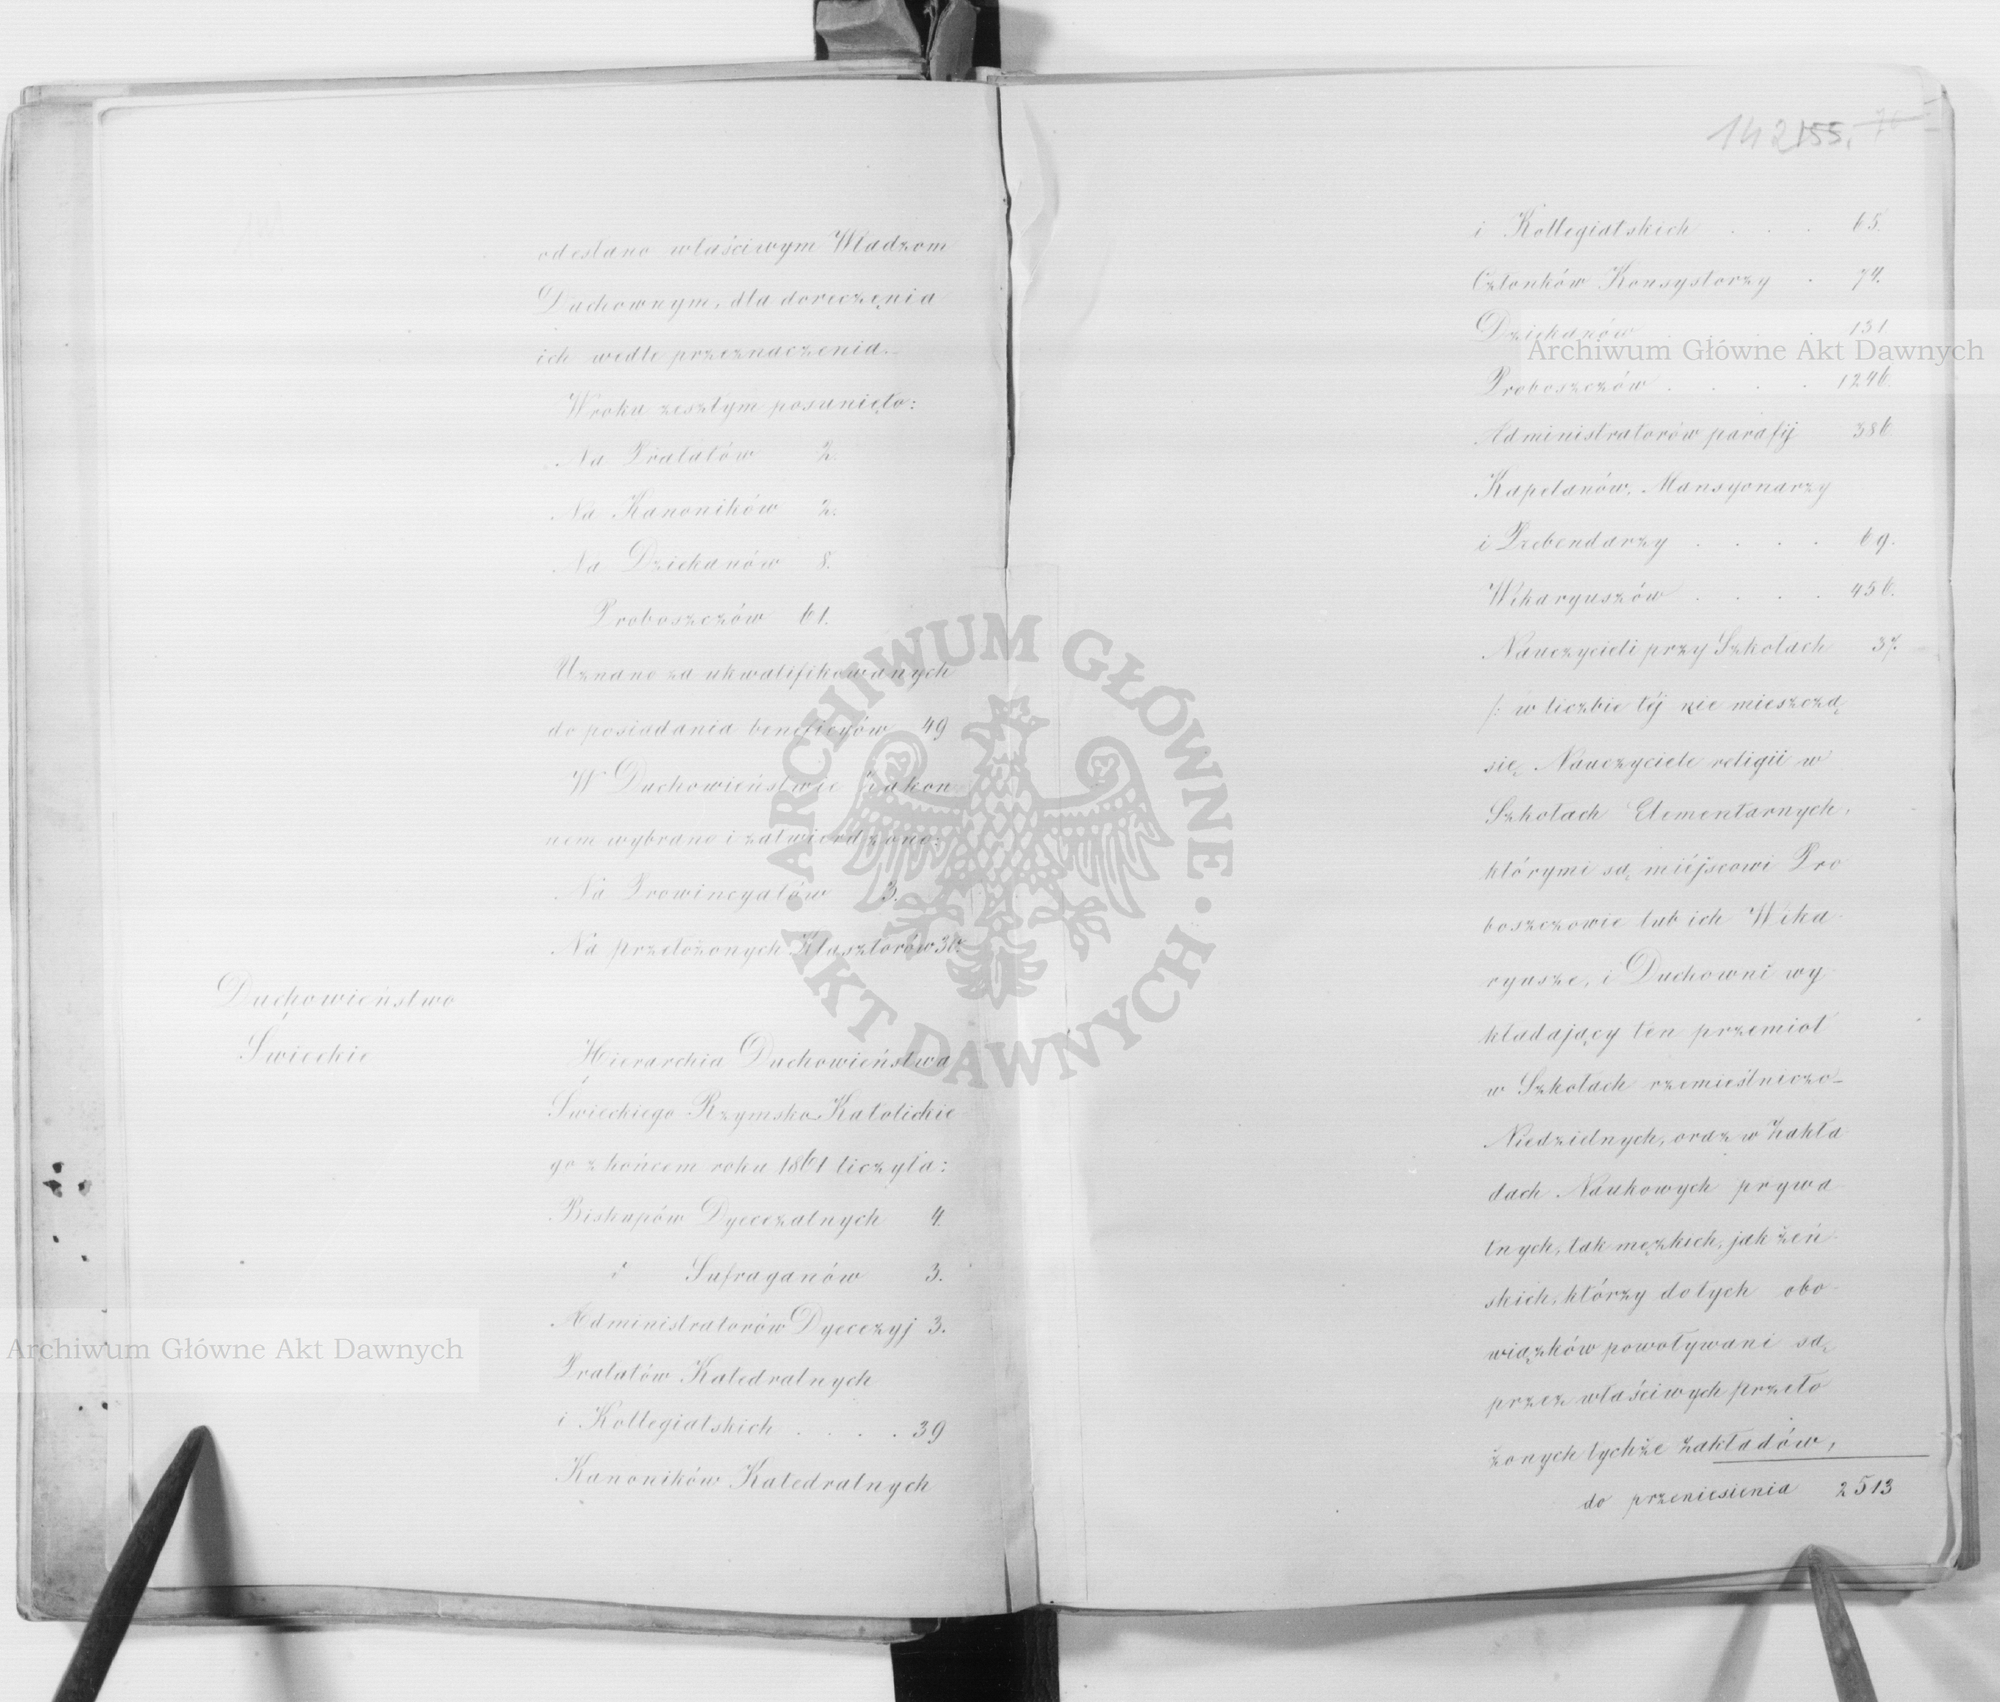 odesłano właściwym Władzom
Duchownym, dla doręczenia
ich wedle przeznaczenia.
W roku zeszłym posunięto:
Na Prałatów 2.
Na Kanoników 2.
Na Dziekanów 8.
Proboszczów 61.
Uznano za ukwalifikowanych
do posiadania beneficyów 49
W Duchowieństwie Zakon
nem wybrano i zatwierdzono:
Na Prowincyałów 3.
Na przełożonych Klasztorów 36.
Duchowieństwo
Świeckie
Hierarchia Duchowieństwa
Świeckiego Rzymsko-Katolickie
go z końcem roku 1861 liczyła:
Biskupów Dyecezalnych 4.
" Sufraganów 3.
Administratorów Dyecezyj 3.
Prałatów Katedralnych
i Kollegiatskich . . . . 39
Kanoników Katedralnych
142 155.
i Kollegiatskich . . . 65.
Członków Konsystorzy . 74.
Dziekanów 131
Proboszczów . . . . 1246.
Administratorów parafij 386
Kapelanów, Mansyonarzy
i Prebendarzy . . . . 69.
Wikaryuszów . . . . 456.
Nauczycieli przy Szkołach 37.
/: w liczbie téj nie mieszczą
się Nauczyciele religii w
Szkołach Elementarnych,
którymi są miéjscowi Pro
boszczowie lub ich Wika
ryusze, i Duchowni wy
kładający ten przemiot
w Szkołach rzemieślniczo-
Niedzielnych, oraz w Zakła
dach Naukowych prywa
tnych, tak męzkich, jak żeń
skich, którzy do tych obo-
wiązków powoływani są
przez właściwych przeło
żonych tychże Zakładów,
do przeniesienia 2513
Archiwum Główne Akt Dawnych
Archiwum Główne Akt Dawnych
ARCHIWUM GŁÓWNE · AKT DAWNYCH ·